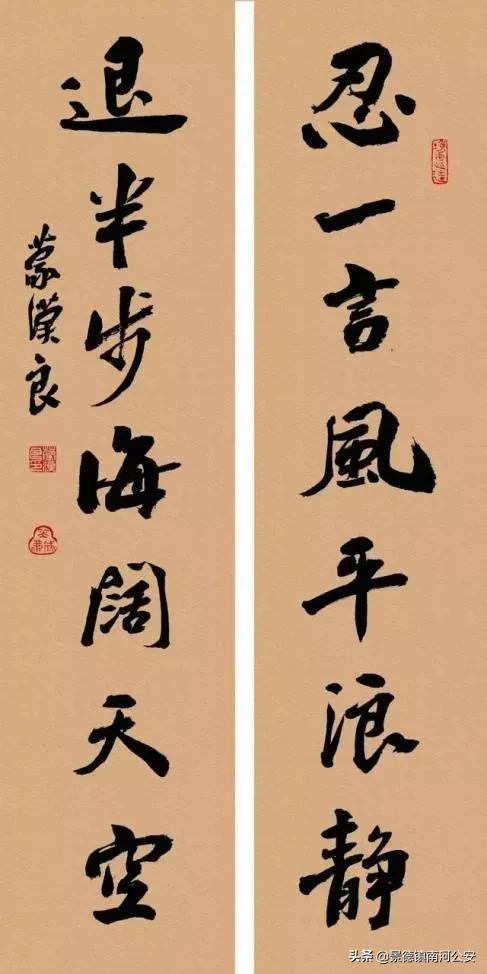 忍一言風平浪静
退半步海阔天空
蒙漢良
头条 @景德镇南河公安